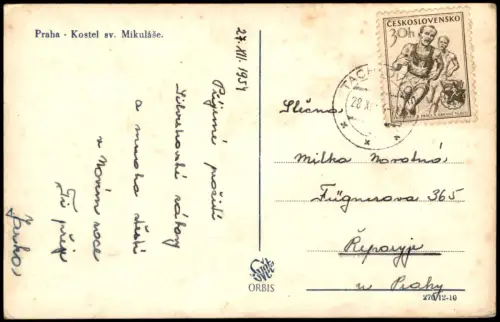 Praha - Kostel sv. Mikuláše.
27.XII.1954
Příjemné prožití
Silvestrovské zábavy
a mnoho štěstí
v Novém roce
Ti přeje
ČESKOSLOVENSKO
30h
TACHOV
28 XII
Slečna
Milka Novotná
Fügnerova 365
Řeporyje
u Prahy
ORBIS
270/12-10